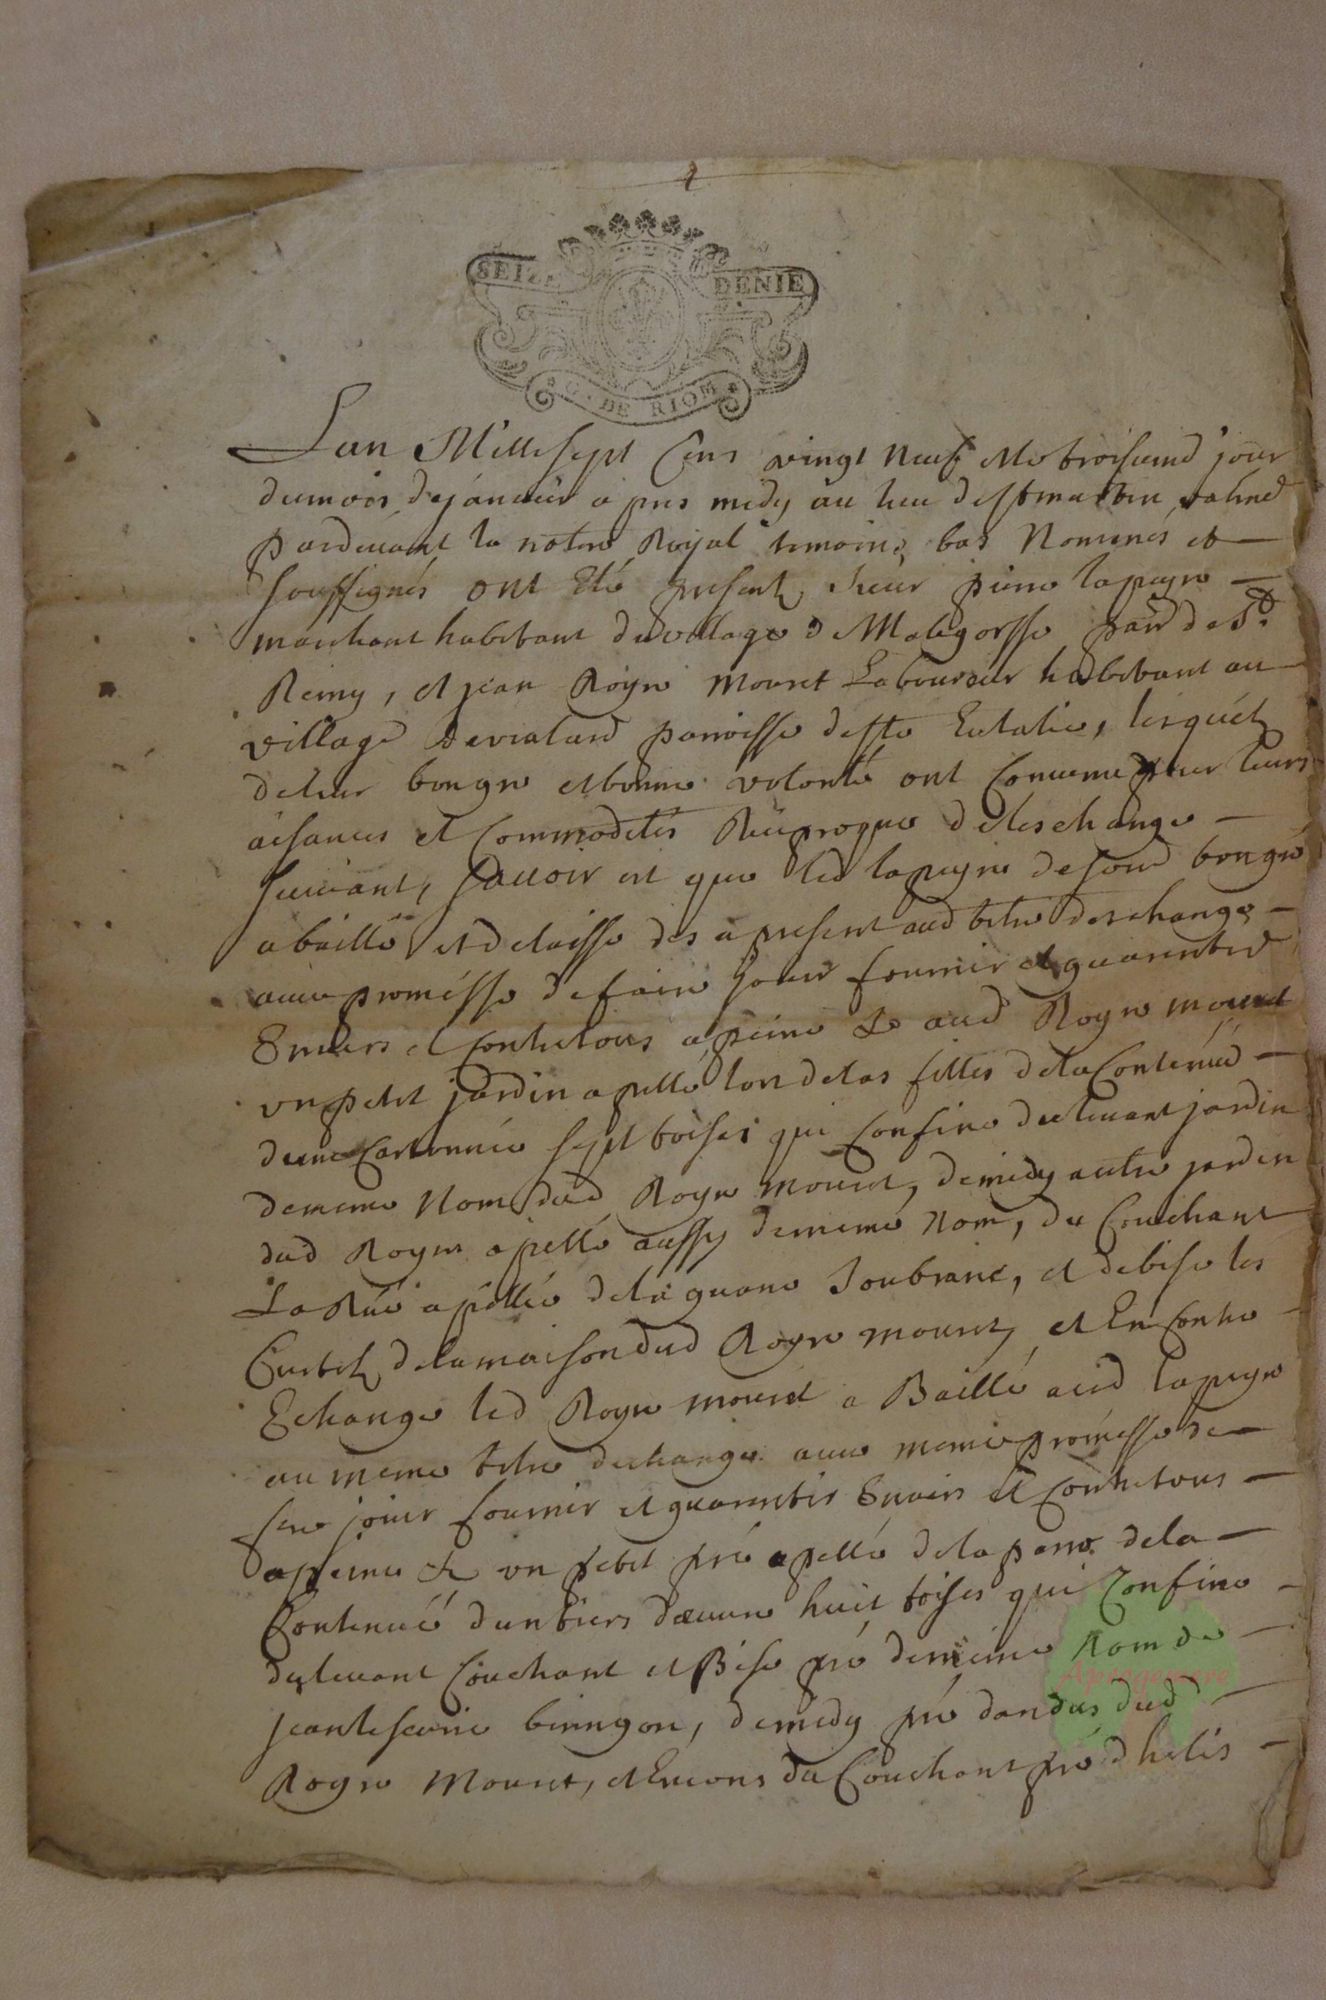 SEIZE DENIE
G. DE RIOM
Lan Mille sept Cens vingt neuf et le troisieme jour
du mois de janvier apres midy au lieu de St martin valmé
pardevant le notre Royal temoins bas Nommés et
soussignés ont Eté present sieur pierre lapeyre
marchant habitant du village de Malegorsse parr de St
Remy, et jean Roÿre Mouret Laboureur habitant au
village de vialard parroisse de ste Eulalie, lesquels
de leur bongre et bonne volonté ont Convenu pour leurs
aisances et Commodités Reciproque deleschange
suivant, sauoir est que led lapeyre de sond bongré
a baillé et delaissé des a present aud titre deschange
auec promésse de faire jouir fournir et guarentir
Enuers et Contre tous a peine &c aud Royre mouret
un petit jardin apellé lort de las filles de la Contenüe
dune Cartonnée sept toises qui Confine du leuant jardin
de meme Nom dud Royre mouret, de midy autre jardin
dud Royre apellé aussy de meme Nom, du Couchant
La Rüe apéllée de la guane Soubrane, et de bise les
Curtils de la maison dud Royre mouret, et En Contre
Echange led Royre mouret a Baillé aud lapeyre
au meme titre dechange auec meme promésse de
fere jouir fournir et guarentir Enuers et Contre tous
a peine &c un petit pré apellé de la parro de la
Contenüe dun tiers dœuure huit toises qui Confine
du leuant Couchant et Bise pré de meme Nom de
jean, de midy pré dandus dud
Royre Mouret, et Encors du Couchant pré d helis
Aprogemere